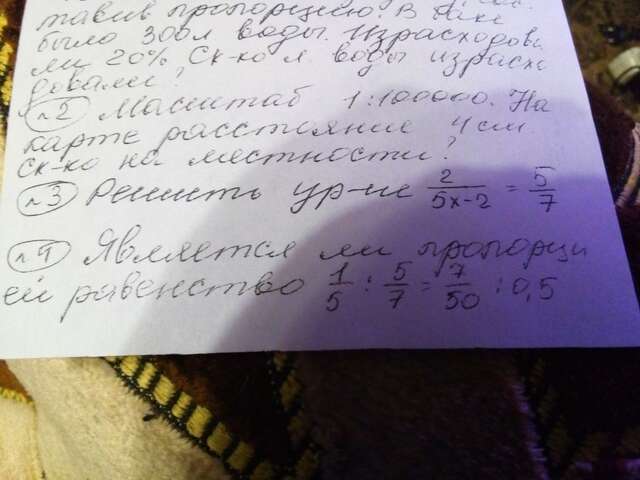 тавив пропорцию. В баке
было 300л воды. Израсходова
ли 20%. Ск-ко л. воды израсхо
довали?
№2 Масштаб 1:100000. На
карте расстояние 4 см.
Ск-ко на местности?
№3 Решить ур-ие 2/5x-2 = 5/7
№4 Является ли пропорци
ей равенство 1/5 : 5/7 = 7/50 : 0,5